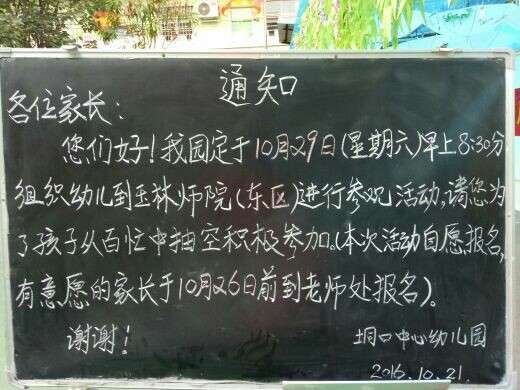 通知
各位家长:
您们好!我园定于10月29日(星期六)早上8:30分
组织幼儿到玉林师院(东区)进行参观活动,请您为
了孩子从百忙中抽空积极参加。(本次活动自愿报名,
有意愿的家长于10月26日前到老师处报名)。
谢谢!
垌口中心幼儿园
2016.10.21.